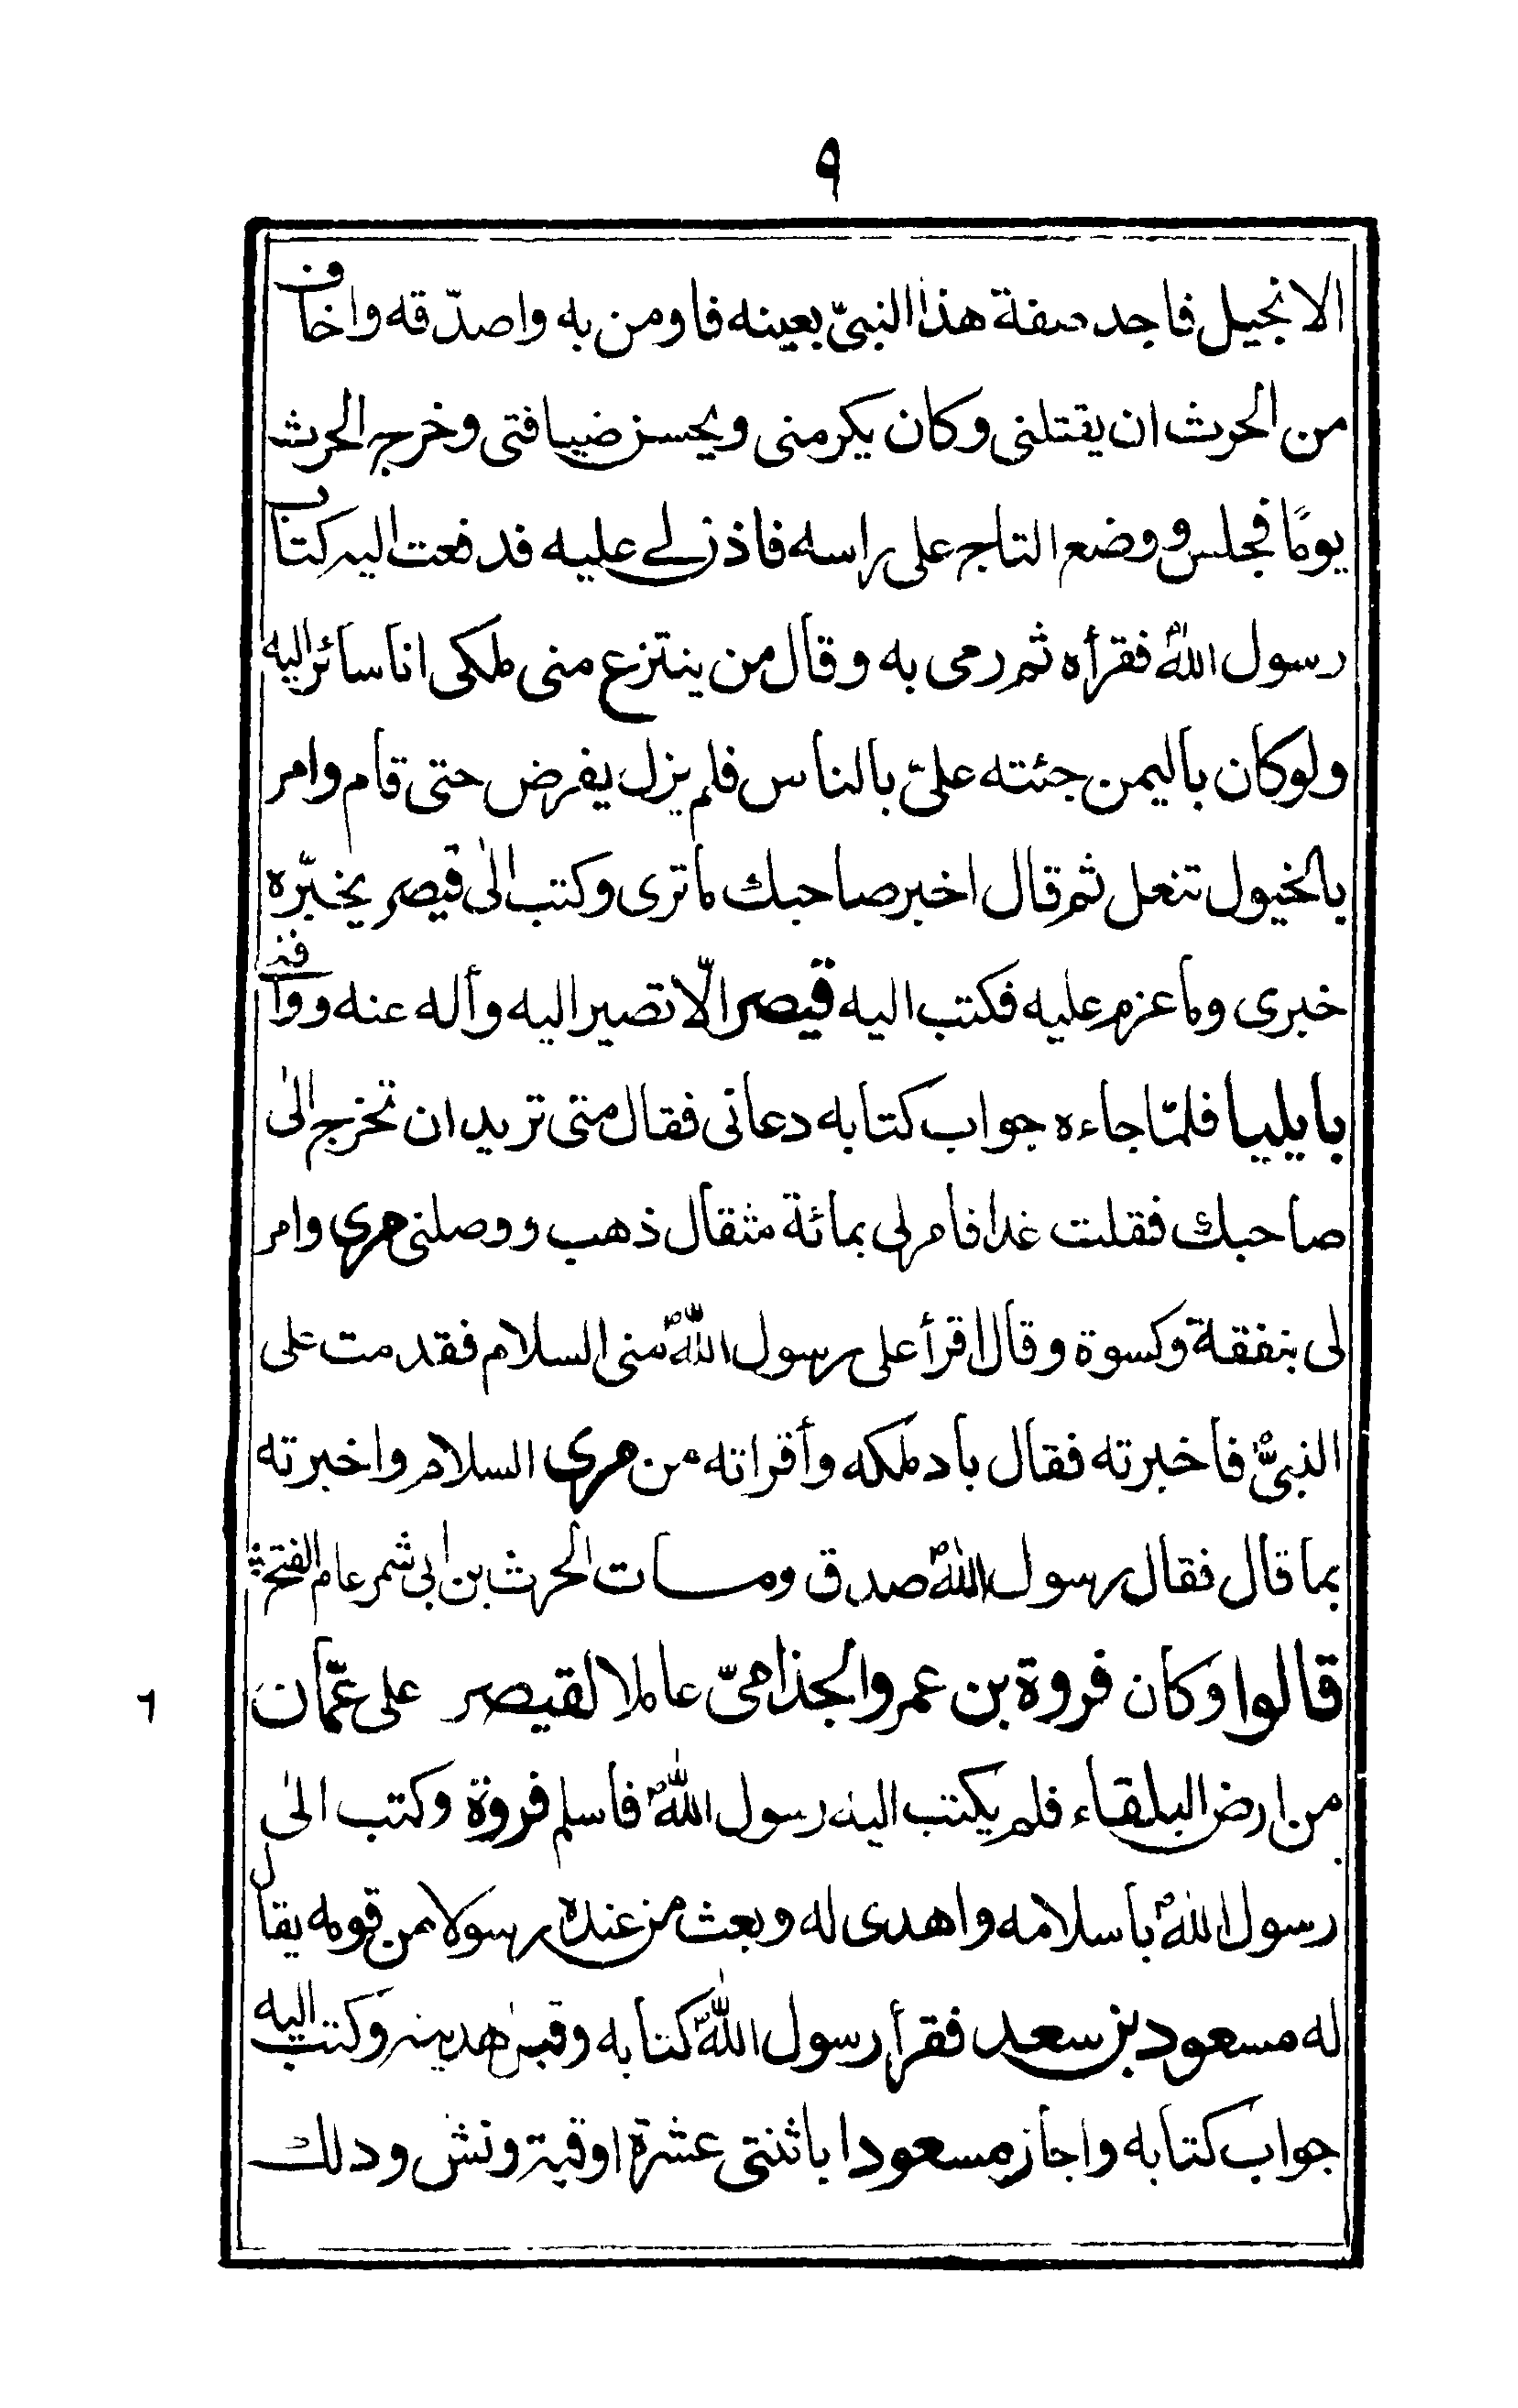 ٩
الانجيل فاجد صفة هذا النبيّ بعينه فاومن به واصدّقه واخاف
من الحرث ان يقتلنى وكان يكرمنى ويحسن ضيافتى وخرج الحرث
يومًا فجلس ووضع التاج على راسه فاذن لى عليه فدفعت اليه كتاب
رسول الله فقرأه ثم رمى به وقال من ينتزع منى ملكى انا سائر اليه
ولوكان باليمن جئته علىّ بالناس فلم يزل يفرض حتى قام وامر
بالخيول تنعل ثم قال اخبر صاحبك ماترى وكتب الى قيصر يخبّره
خبرى وما عزم عليه فكتب اليه قيصر الّا تصير اليه وأله عنه ووافنى
بايليا فلمّا جاءه جواب كتابه دعانى فقال متى تريد ان تخرج الى
صاحبك فقلت غدا فامر لى بمائة مثقال ذهب ووصلنى مرى وامر
لى بنفقة وكسوة وقال اقرأ على رسول الله منى السلام فقدمت على
النبىّ فاخبرته فقال باد ملكه وأقراته من مرى السلام واخبرته
بما قال فقال رسول الله صدق ومات الحرث بن ابى شمر عام الفتح
قالوا وكان فروة بن عمرو الجذامىّ عاملا لقيصر على عمّان
٦
من ارض البلقاء فلم يكتب اليه رسول الله فاسلم فروة وكتب الى
رسول الله باسلامه واهدى له وبعث من عنده رسولا من قومه يقال
له مسعود بن سعد فقرأ رسول الله كتابه وقبل هديته وكتب اليه
جواب كتابه واجاز مسعودا باثنتى عشرة اوقية ونش وذلك